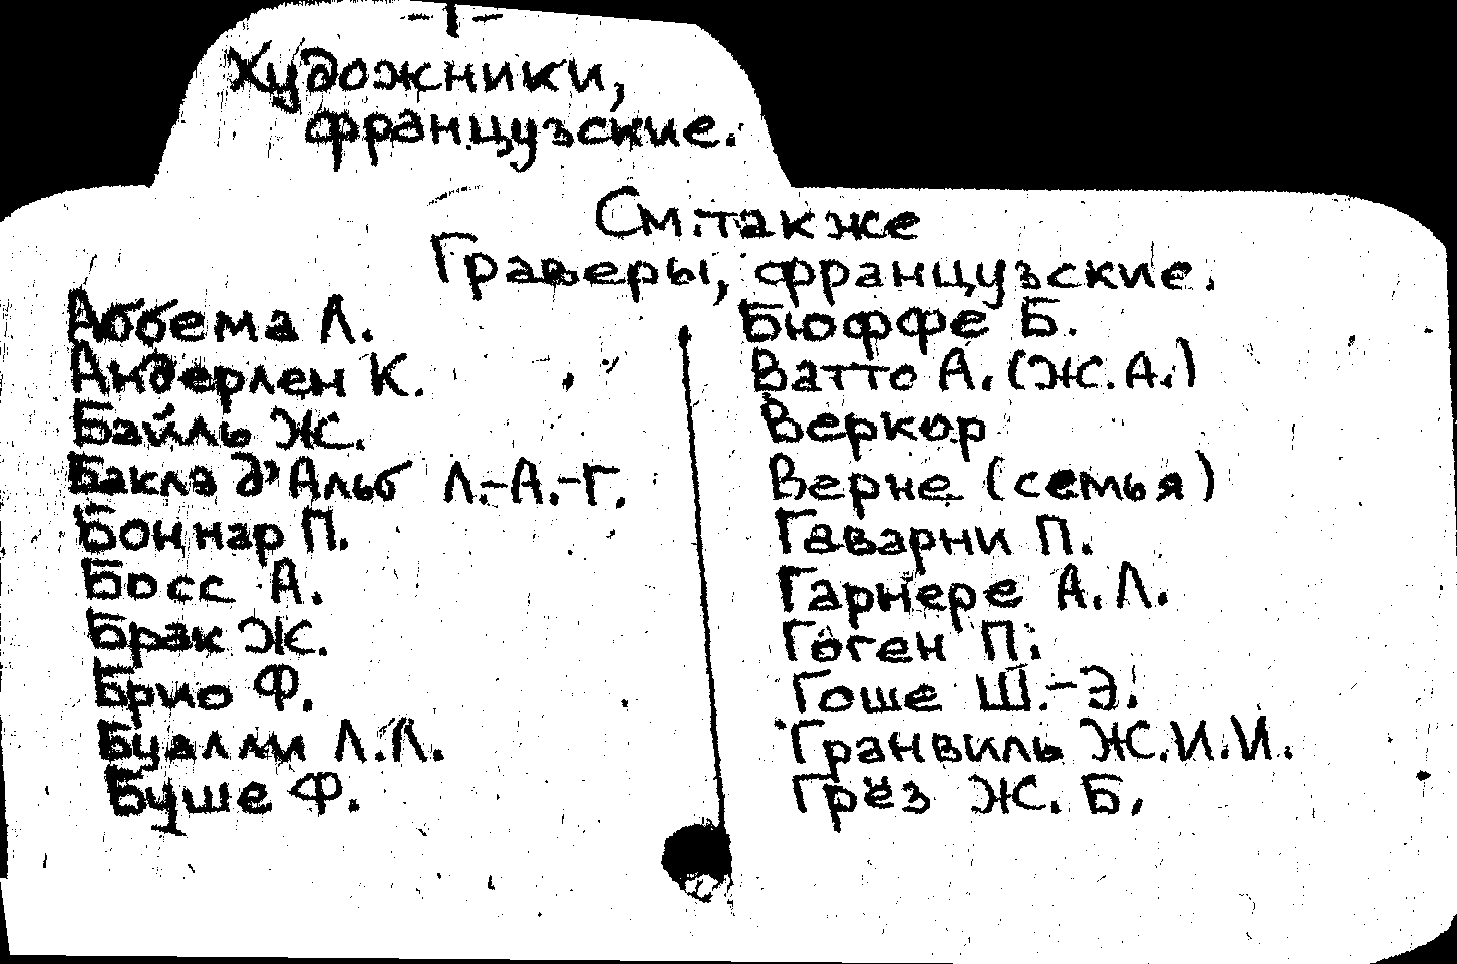 - 1 -
Художники,
французские.
См. также
Граверы, французские.
Аббема Л.
Андерлен К.
Байль Ж.
Баклэ д'Альб Л.-А.-Г.
Боннар П.
Босс А.
Брак Ж.
Брио Ф.
Буалли Л.Л.
Буше Ф.
Бюффе Б.
Ватто А. (Ж.А.)
Веркор
Верне (семья)
Гаварни П.
Гарнере А.Л.
Гоген П.
Гоше Ш.-Э.
Гранвиль Ж.И.И.
Грёз Ж. Б.